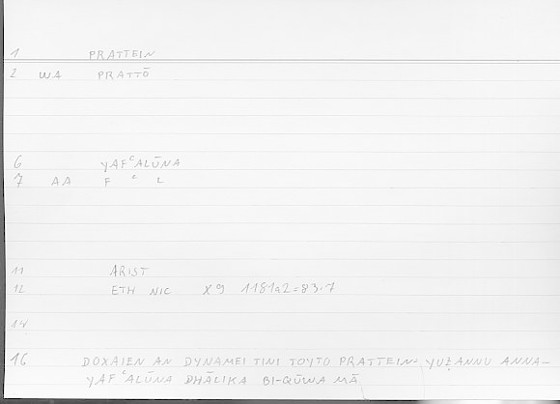 1 PRATTEIN
2 WA PRATTŌ
6 YAFᶜALŪNA
7 AA F ᶜ L
11 ARIST
12 ETH NIC X9 1181a2=83.7
14
16 DOXAIEN AN DYNAMEI TINI TOYTO PRATTEIN YUẒANNU ANNA-
YAFᶜALŪNA DHĀLIKA BI-QŪWA MĀ